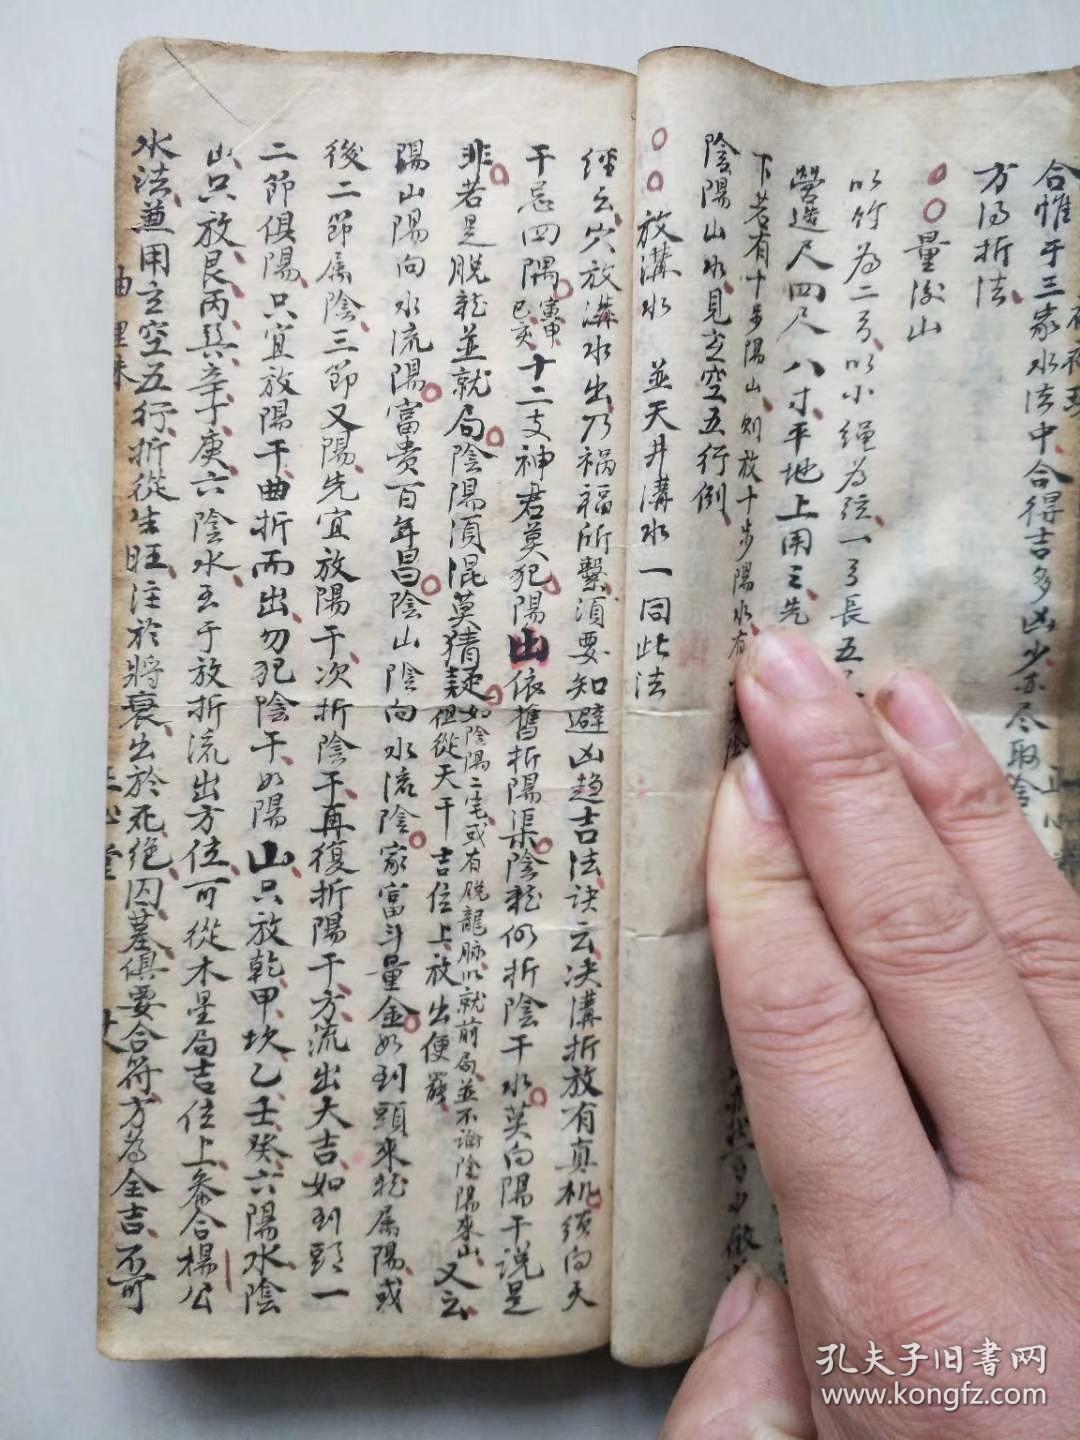 合惟于三家水法中合得吉多凶少亦尽取
方為折法
量後山
以竹為二弓以小绳為弦一弓長五
營造尺四尺八寸平地上用之先
下若有十步陽山则放十步陽水有
陰陽山水見玄空五行倒
放溝水 並天井溝水一同此法
經云穴放溝水出乃祸福所繫須要知避凶趋吉法訣云决溝折放有真机须向天
干忌四隅寅申巳亥十二支神君莫犯陽山依舊折陽渠陰龍仍折陰干水莫向陽干説是
非若是脱龍並就局陰陽須混莫猜疑如陰陽二宅或有脱龍脉以就前局並不論陰陽來山但從天干吉位上放出便罷又云
陽山陽向水流陽富贵百年昌陰山陰向水流陰家富斗量金如到頭來龍属陽或
後二節属陰三節又陽先宜放陽干次折陰干再復折陽干方流出大吉如到頭一
二節俱陽只宜放陽干曲折而出勿犯陰干如陽山只放乾甲坎乙壬癸六陽水陰
山只放艮丙巽辛丁庚六陰水至于放折流出方位可從木星局吉位上叅合楊公
水法兼用玄空五行折從生旺注於將衰出於死绝囚墓俱要合符方為全吉不可
孔夫子旧書网
www.kongfz.com